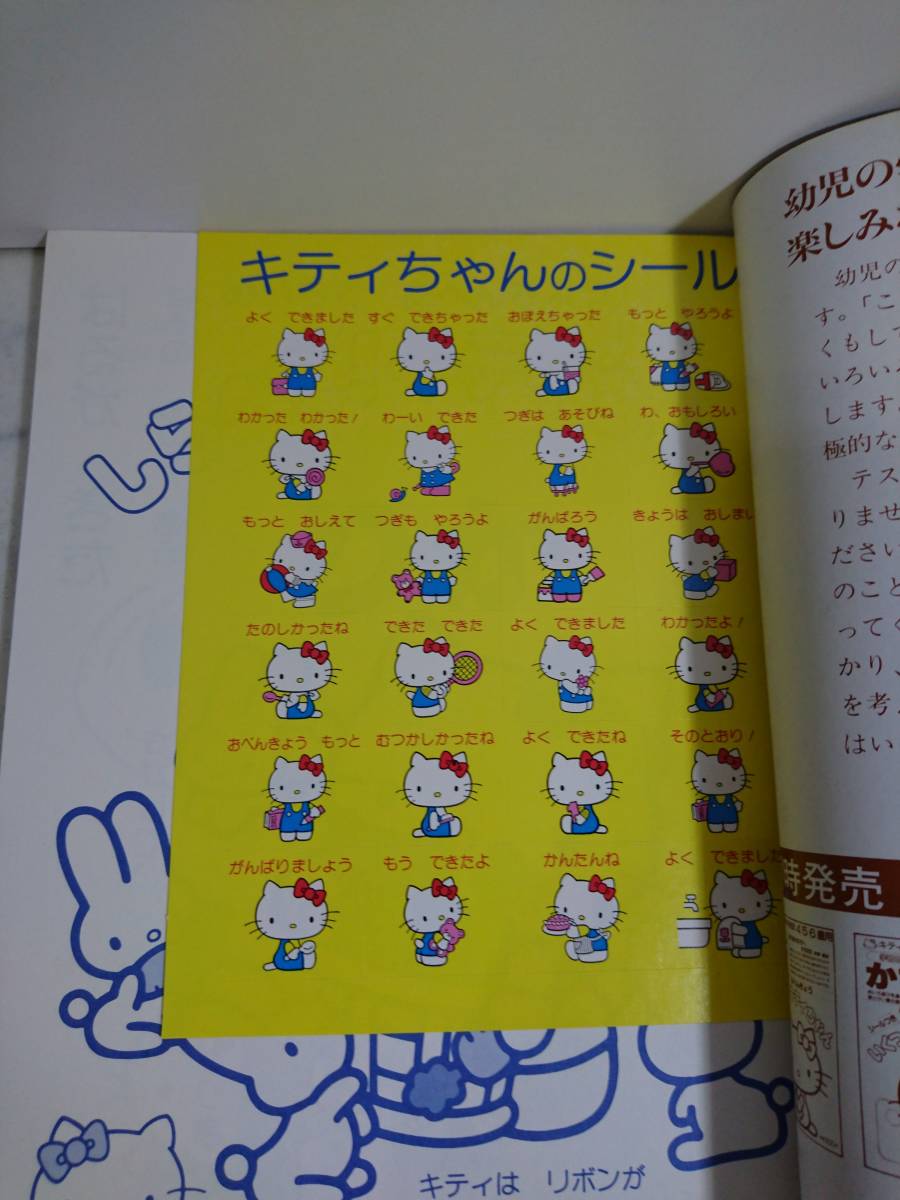 キティちゃんのシール
よく できました すぐ できちゃった おぼえちゃった もっと やろうよ
わかった わかった! わーい できた つぎは あそびね わ、おもしろい
もっと おしえて つぎも やろうよ がんばろう きょうは おしまい
たのしかったね できた できた よく できました わかったよ!
おべんきょう もっと むつかしかったね よく できたね そのとおり!
がんばりましょう もう できたよ かんたんね よく できました
キティは リボンが
幼児の
楽しみ
幼児の
す。「こ
くもして
いろいろ
します。
極的な
テス
りませ
ださい
のこと
ってく
かり、
を考え
はい
時発売
456歳用
キティ
か